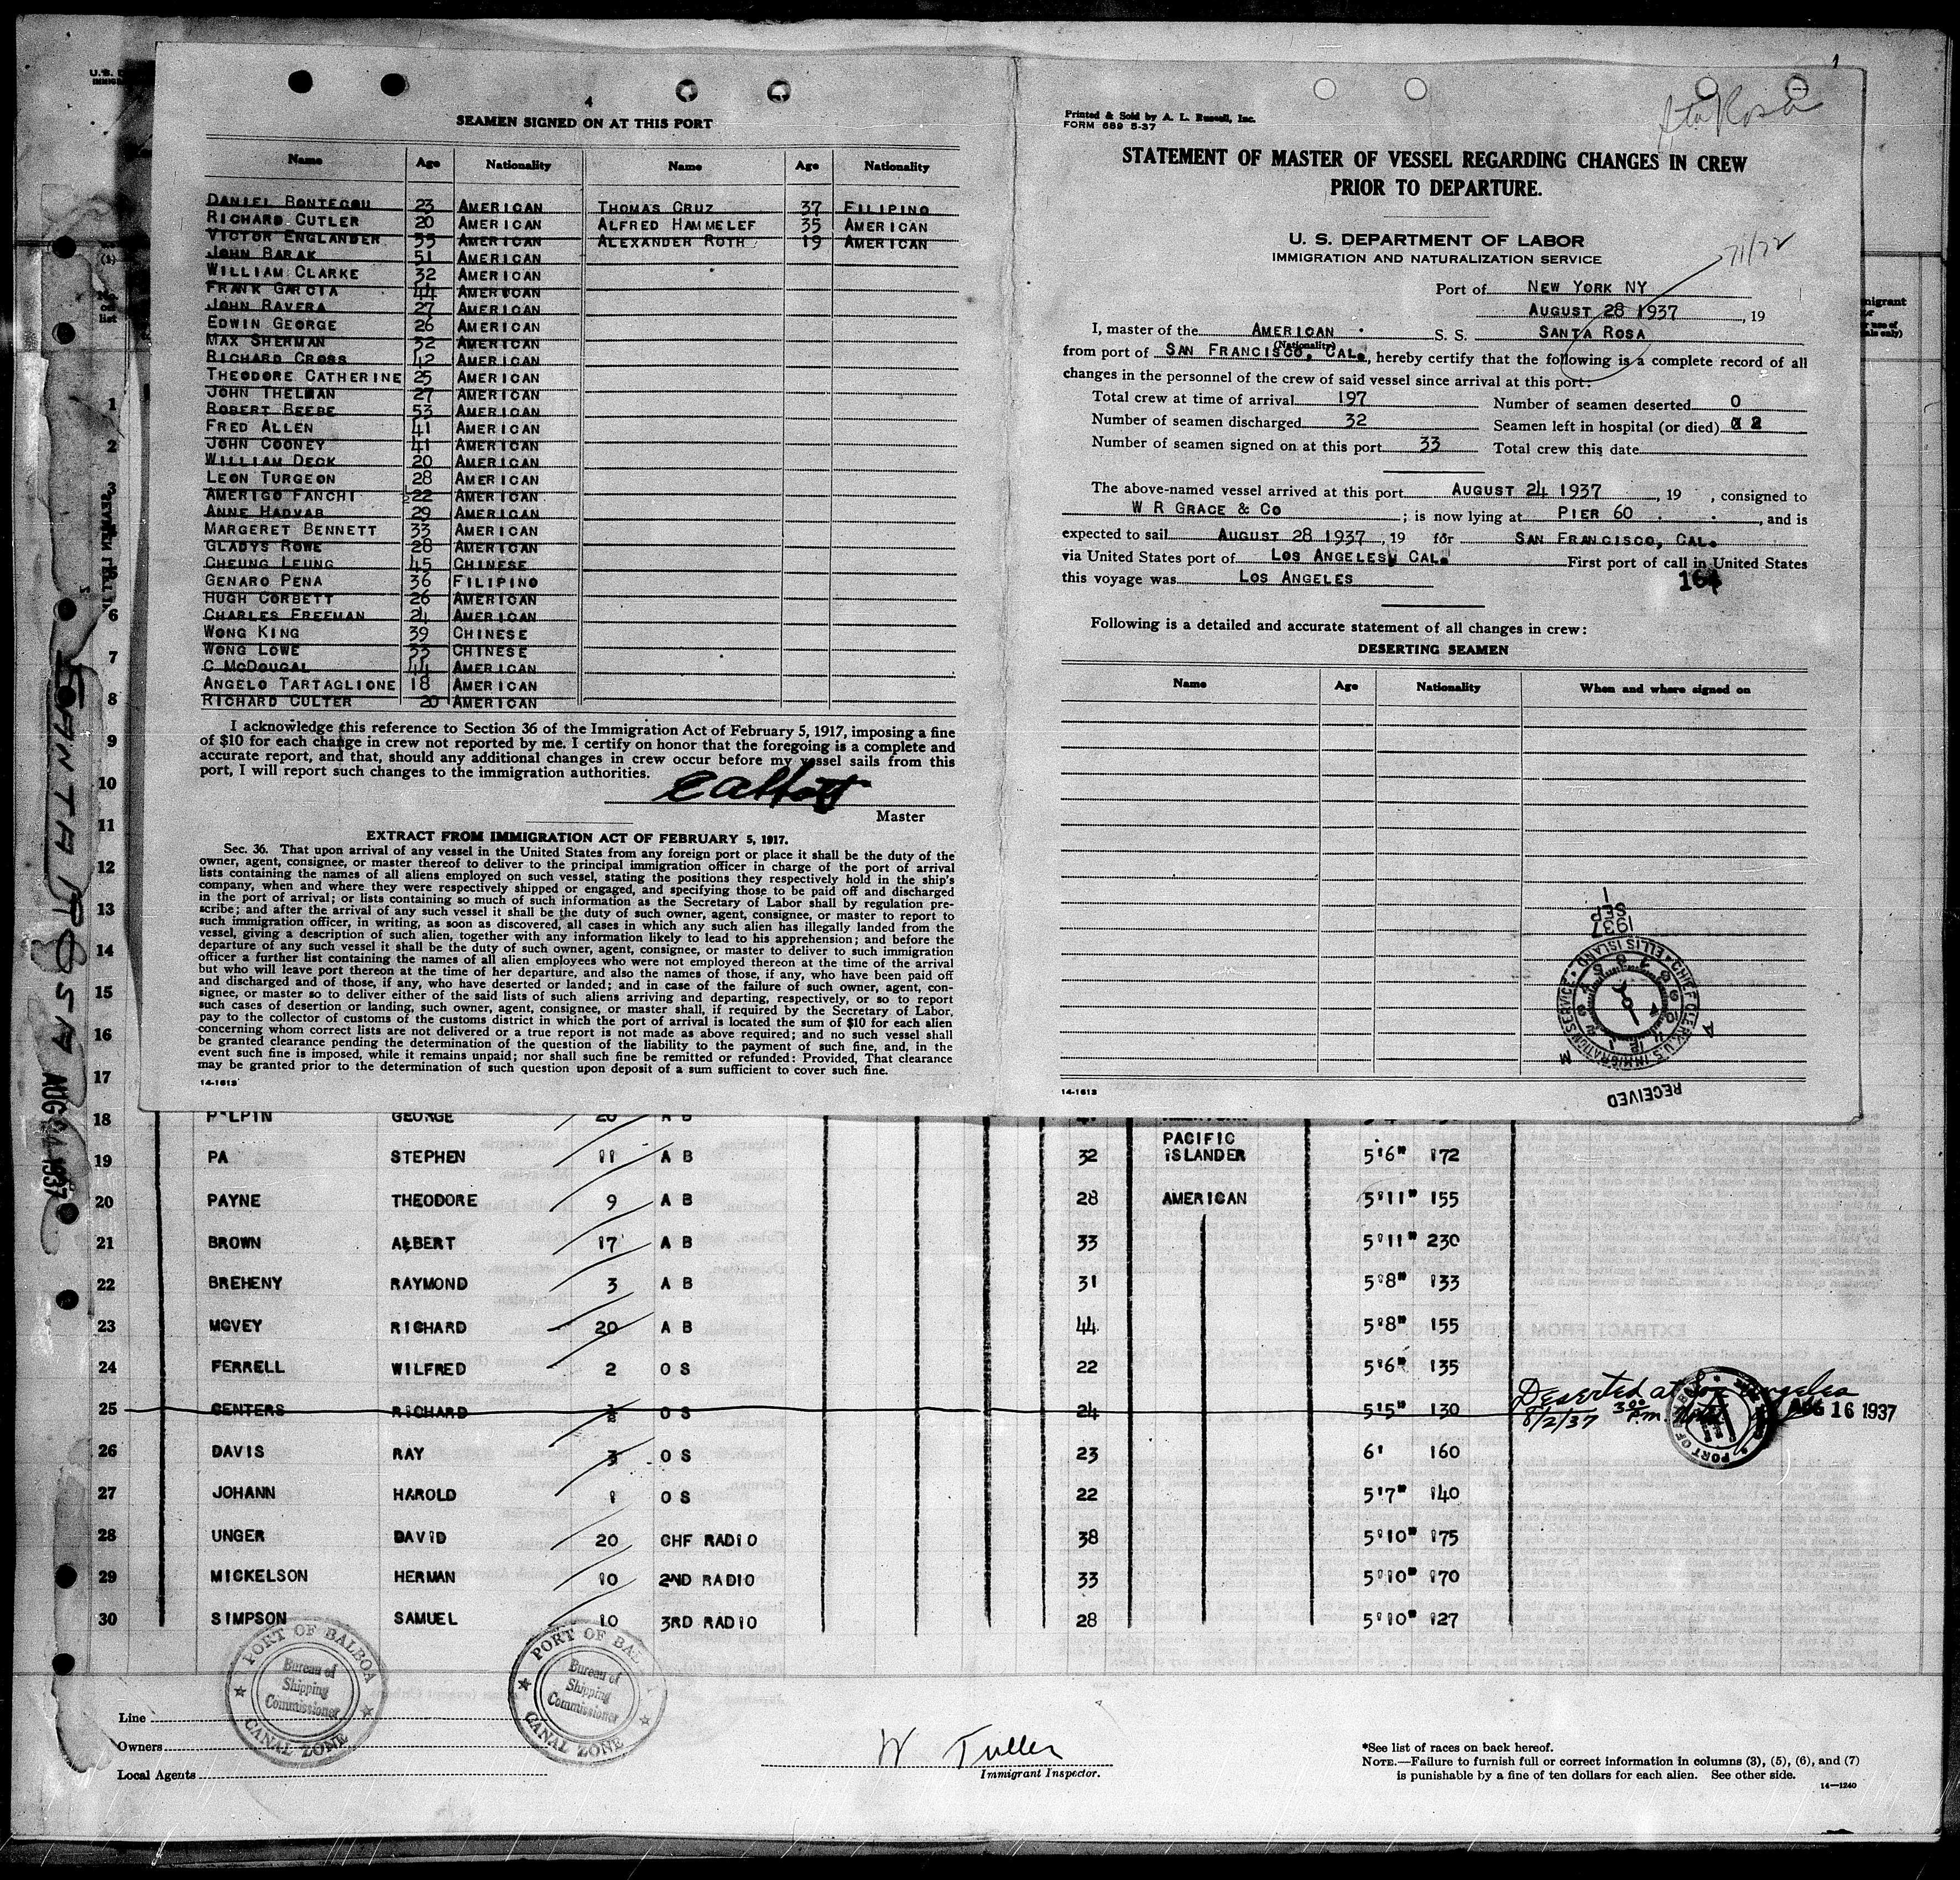 4
SEAMEN SIGNED ON AT THIS PORT
Name Age Nationality Name Age Nationality
DANIEL BONTECOU 23 AMERICAN THOMAS CRUZ 37 FILIPINO
RICHARD CUTLER 20 AMERICAN ALFRED HAMMELEF 35 AMERICAN
VICTOR ENGLANDER 33 AMERICAN ALEXANDER ROTH 19 AMERICAN
JOHN BARAK 51 AMERICAN
WILLIAM CLARKE 32 AMERICAN
FRANK GARCIA 44 AMERICAN
JOHN RAVERA 27 AMERICAN
EDWIN GEORGE 26 AMERICAN
MAX SHERMAN 32 AMERICAN
RICHARD CROSS 42 AMERICAN
THEODORE CATHERINE 25 AMERICAN
JOHN THELMAN 27 AMERICAN
ROBERT BEEBE 53 AMERICAN
FRED ALLEN 41 AMERICAN
JOHN COONEY 41 AMERICAN
WILLIAM DECK 20 AMERICAN
LEON TURGEON 28 AMERICAN
AMERIGO FANCHI 22 AMERICAN
ANNE HADVAB 29 AMERICAN
MARGERET BENNETT 33 AMERICAN
GLADYS ROWE 28 AMERICAN
CHEUNG LEUNG 45 CHINESE
GENARO PENA 36 FILIPINO
HUGH CORBETT 26 AMERICAN
CHARLES FREEMAN 24 AMERICAN
WONG KING 39 CHINESE
WONG LOWE 33 CHINESE
C MCDOUGAL 44 AMERICAN
ANGELO TARTAGLIONE 18 AMERICAN
RICHARD CULTER 20 AMERICAN
I acknowledge this reference to Section 36 of the Immigration Act of February 5, 1917, imposing a fine
of $10 for each change in crew not reported by me. I certify on honor that the foregoing is a complete and
accurate report, and that, should any additional changes in crew occur before my vessel sails from this
port, I will report such changes to the immigration authorities.
Master
EXTRACT FROM IMMIGRATION ACT OF FEBRUARY 5, 1917.
Sec. 36. That upon arrival of any vessel in the United States from any foreign port or place it shall be the duty of the
owner, agent, consignee, or master thereof to deliver to the principal immigration officer in charge of the port of arrival
lists containing the names of all aliens employed on such vessel, stating the positions they respectively hold in the ship's
company, when and where they were respectively shipped or engaged, and specifying those to be paid off and discharged
in the port of arrival; or lists containing so much of such information as the Secretary of Labor shall by regulation pre-
scribe; and after the arrival of any such vessel it shall be the duty of such owner, agent, consignee, or master to report to
such immigration officer, in writing, as soon as discovered, all cases in which any such alien has illegally landed from the
vessel, giving a description of such alien, together with any information likely to lead to his apprehension; and before the
departure of any such vessel it shall be the duty of such owner, agent, consignee, or master to deliver to such immigration
officer a further list containing the names of all alien employees who were not employed thereon at the time of the arrival
but who will leave port thereon at the time of her departure, and also the names of those, if any, who have been paid off
and discharged and of those, if any, who have deserted or landed; and in case of the failure of such owner, agent, con-
signee, or master so to deliver either of the said lists of such aliens arriving and departing, respectively, or so to report
such cases of desertion or landing, such owner, agent, consignee, or master shall, if required by the Secretary of Labor,
pay to the collector of customs of the customs district in which the port of arrival is located the sum of $10 for each alien
concerning whom correct lists are not delivered or a true report is not made as above required; and no such vessel shall
be granted clearance pending the determination of the question of the liability to the payment of such fine, and, in the
event such fine is imposed, while it remains unpaid; nor shall such fine be remitted or refunded: Provided, That clearance
may be granted prior to the determination of such question upon deposit of a sum sufficient to cover such fine.
14-1613
Sta Rosa
Printed & Sold by A. L. Russell, Inc.
FORM 689 5-37
STATEMENT OF MASTER OF VESSEL REGARDING CHANGES IN CREW
PRIOR TO DEPARTURE.
U. S. DEPARTMENT OF LABOR
IMMIGRATION AND NATURALIZATION SERVICE
71/72
Port of NEW YORK NY
AUGUST 28 1937, 19
I, master of the AMERICAN S. S. SANTA ROSA
(Nationality)
from port of SAN FRANCISCO, CAL., hereby certify that the following is a complete record of all
changes in the personnel of the crew of said vessel since arrival at this port:
Total crew at time of arrival 197 Number of seamen deserted 0
Number of seamen discharged 32 Seamen left in hospital (or died) 2
Number of seamen signed on at this port 33 Total crew this date
The above-named vessel arrived at this port AUGUST 24 1937, 19 , consigned to
W R GRACE & CO ; is now lying at PIER 60, and is
expected to sail AUGUST 28 1937, 19 for SAN FRANCISCO, CAL.
via United States port of LOS ANGELES, CAL. First port of call in United States
this voyage was LOS ANGELES
164
Following is a detailed and accurate statement of all changes in crew:
DESERTING SEAMEN
Name Age Nationality When and where signed on
1937 SEP 1
CHIEF CLERK, U.S. IMMIGRATION SERVICE • ELLIS ISLAND
A M
RECEIVED
14-1613
SANTA ROSA AUG 24 1937
1
2
3
6
7
8
9
10
11
12
13
14
15
16
17
18 GEORGE 20 A B
19 PA STEPHEN 11 A B 32 PACIFIC ISLANDER 5'6" 172
20 PAYNE THEODORE 9 A B 28 AMERICAN 5'11" 155
21 BROWN ALBERT 17 A B 33 5'11" 230
22 BREHENY RAYMOND 3 A B 31 5'8" 133
23 MCVEY RICHARD 20 A B 44 5'8" 155
24 FERRELL WILFRED 2 O S 22 5'6" 135
25 CENTERS RICHARD 1/2 O S 24 5'5" 130 Deserted at Los Angeles
8/2/37 3:00 P.m. AUG 16 1937
26 DAVIS RAY 3 O S 23 6' 160
27 JOHANN HAROLD 1 O S 22 5'7" 140
28 UNGER DAVID 20 CHF RADIO 38 5'10" 175
29 MICKELSON HERMAN 10 2ND RADIO 33 5'10" 170
30 SIMPSON SAMUEL 10 3RD RADIO 28 5'10" 127
PORT OF BALBOA
Bureau of
Shipping
Commissioner
CANAL ZONE
PORT OF BAL
Bureau of
Shipping
Commissioner
CANAL ZONE
Line
Owners
Local Agents
W Tuller
Immigrant Inspector.
*See list of races on back hereof.
NOTE.—Failure to furnish full or correct information in columns (3), (5), (6), and (7)
is punishable by a fine of ten dollars for each alien. See other side.
14—1240